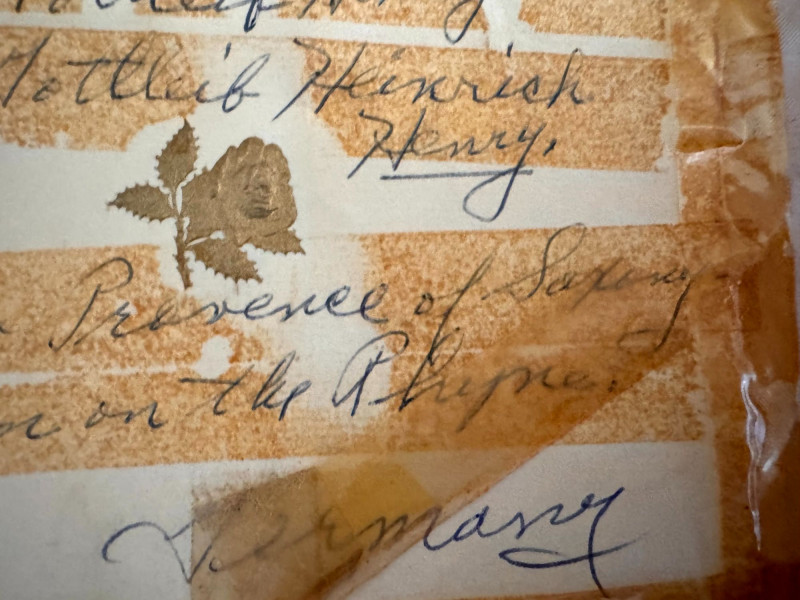 Gottleib Heinrich
Henry.
Provence of Saxony-
on the Rhyne.
Germany